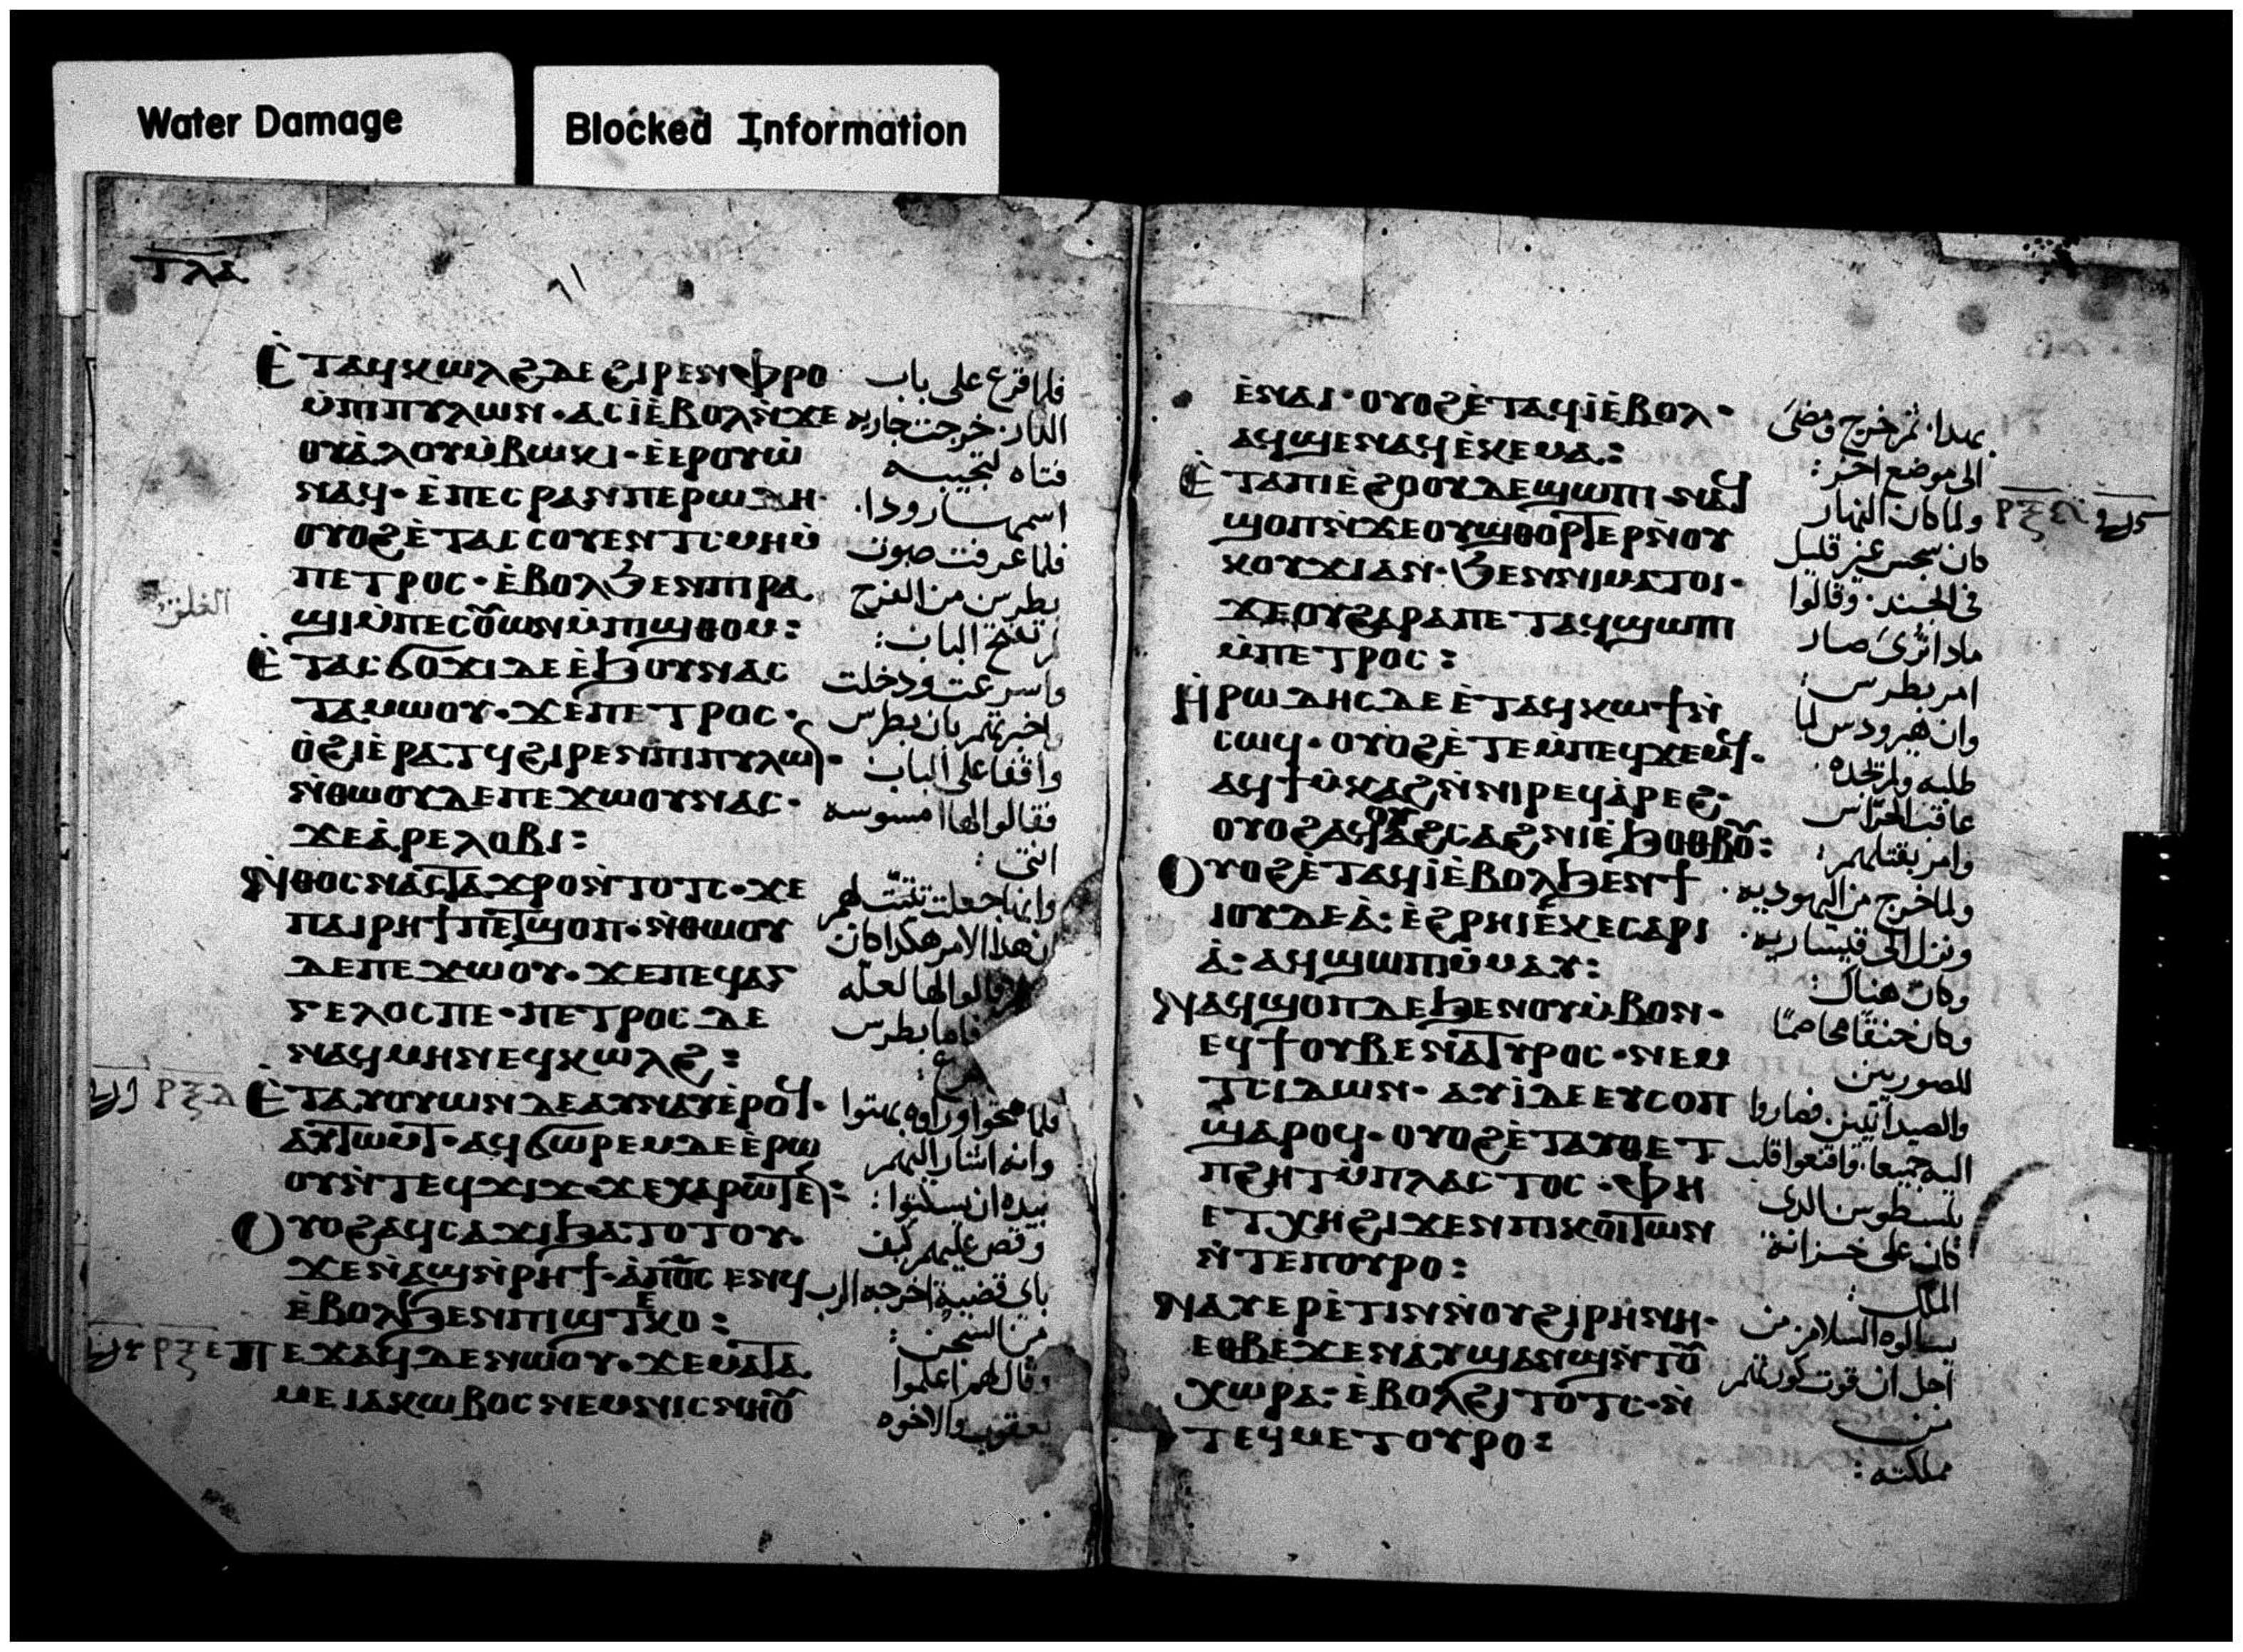 Water Damage
Blocked Information
ⲧⲗⲇ
Ⲉ̀ⲧⲁϥⲕⲱⲗϩ ⲇⲉ ϩⲓⲣⲉⲛ ⲫⲣⲟ
ⲙ̀ⲡⲓⲡⲩⲗⲱⲛ · ⲁⲥⲓ̀ ⲉ̀ⲃⲟⲗ ⲛ̀ϫⲉ
ⲟⲩⲁ̀ⲗⲟⲩ ⲙ̀ⲃⲱⲕⲓ · ⲉ̀ⲉⲣⲟⲩⲱ̀
ⲛⲁϥ · ⲉ̀ⲡⲉⲥⲣⲁⲛ ⲡⲉ ⲣⲱⲇⲏ ·
ⲟⲩⲟϩ ⲉ̀ⲧⲁⲥⲥⲟⲩⲉⲛ ⲧⲥⲙⲏ ⲙ̀
ⲡⲉⲧⲣⲟⲥ · ⲉ̀ⲃⲟⲗ ϧⲉⲛ ⲡⲓⲣⲁ
ϣⲓ ⲙ̀ⲡⲉⲥⲟ̅ⲩⲱⲛ ⲙ̀ⲡⲓϣⲑⲟⲙ :
Ⲉ̀ⲧⲁⲥϭⲟϫⲓ ⲇⲉ ⲉ̀ϧⲟⲩⲛ ⲁⲥ
ⲧⲁⲙⲱⲟⲩ · ϫⲉ ⲡⲉⲧⲣⲟⲥ ·
ⲟ̀ϩⲓ ⲉ̀ⲣⲁⲧϥ ϩⲓⲣⲉⲛ ⲡⲓⲡⲩⲗⲱⲛ ·
ⲛ̀ⲑⲱⲟⲩ ⲇⲉ ⲡⲉϫⲱⲟⲩ ⲛⲁⲥ ·
ϫⲉ ⲁ̀ⲣⲉⲗⲟⲃⲓ :
Ⲛ̀ⲑⲟⲥ ⲛⲁⲥⲧⲁϫⲣⲟ ⲛ̀ⲧⲟⲧⲥ · ϫⲉ
ⲡⲁⲓⲣⲏϯ ⲡⲉⲧϣⲟⲡ · ⲛ̀ⲑⲱⲟⲩ
ⲇⲉ ⲡⲉϫⲱⲟⲩ · ϫⲉ ⲡⲉϥⲁⲅ
ⲅⲉⲗⲟⲥ ⲡⲉ · ⲡⲉⲧⲣⲟⲥ ⲇⲉ
ⲛⲁϥⲙⲏⲛ ⲉϥⲕⲱⲗϩ :
Ⲉ̀ⲧⲁⲩⲟⲩⲱⲛ ⲇⲉ ⲁⲩⲛⲁⲩ ⲉ̀ⲣⲟϥ ·
ⲁⲩⲧⲱⲙⲧ · ⲁϥϭⲱⲣⲉⲙ ⲇⲉ ⲉ̀ⲣⲱ
ⲟⲩ ⲛ̀ⲧⲉϥϫⲓϫ · ϫⲉ ⲭⲁⲣⲱⲧⲉⲛ :
Ⲟⲩⲟϩ ⲁϥⲥⲁϫⲓ ϧⲁⲧⲟⲧⲟⲩ ·
ϫⲉ ⲛ̀ⲁϣ ⲛ̀ⲣⲏϯ · ⲁ̀ ⲡⲟ̅ⲥ ⲉⲛϥ
ⲉ̀ⲃⲟⲗ ϧⲉⲛ ⲡⲓϣⲧⲉⲕⲟ :
Ⲡⲉϫⲁϥ ⲇⲉ ⲛⲱⲟⲩ · ϫⲉ ⲙⲁⲧⲁ
ⲙⲉ ⲓⲁⲕⲱⲃⲟⲥ ⲛⲉⲙ ⲛⲓⲥⲛⲏⲟⲩ
ⲣⲝⲇ
ⲣⲝⲉ
الغلق
فلما قرع على باب
الدار خرجت جاريه
فتاه لتجيبه
اسمها رودا .
فلما عرفت صوت
بطرس من الفرح
لم تفتح الباب :
واسرعت ودخلت
واخبرتهم بان بطرس
واقفا على الباب
فقالوا لها اممسوسه
انتى :
وانها جعلت تثبت لهم
ان هذا الامر هكذا كان
قالوا لها لعله
فاما بطرس
فلما فتحوا وراوه بهتوا
وانه اشار اليهم
بيده ان يسكتوا :
وقص عليهم كيف
باى قضية اخرجه الرب
من السجن :
وقال لهم اعلموا
يعقوب والاخوه
ⲉ̀ⲛⲁⲓ · ⲟⲩⲟϩ ⲉ̀ⲧⲁϥⲓ̀ ⲉ̀ⲃⲟⲗ ·
ⲁϥϣⲉⲛⲁϥ ⲉ̀ⲕⲉⲙⲁ :
Ⲉ̀ⲧⲁ ⲡⲓⲉ̀ϩⲟⲟⲩ ⲇⲉ ϣⲱⲡⲓ ⲛⲁϥ
ϣⲟⲡ ⲛ̀ϫⲉ ⲟⲩϣⲑⲟⲣⲧⲉⲣ ⲛ̀ⲟⲩ
ⲕⲟⲩϫⲓ ⲁⲛ · ϧⲉⲛ ⲛⲓⲙⲁⲧⲟⲓ ·
ϫⲉ ⲟⲩ ϩⲁⲣⲁ ⲡⲉⲧⲁϥϣⲱⲡⲓ
ⲙ̀ⲡⲉⲧⲣⲟⲥ :
Ⲏ̀ⲣⲱⲇⲏⲥ ⲇⲉ ⲉ̀ⲧⲁϥⲕⲱϯ ⲛ̀
ⲥⲱϥ · ⲟⲩⲟϩ ⲉ̀ⲧⲉ ⲙ̀ⲡⲉϥϫⲉⲙϥ ·
ⲁϥϯⲙ̀ⲕⲁϩ ⲛ̀ⲛⲓⲣⲉϥⲁ̀ⲣⲉϩ ·
ⲟⲩⲟϩ ⲁϥⲟⲩⲁϩⲥⲁϩⲛⲓ ⲉ̀ϧⲟⲑⲃⲟⲩ :
Ⲟⲩⲟϩ ⲉ̀ⲧⲁϥⲓ̀ ⲉ̀ⲃⲟⲗ ϧⲉⲛ ϯ
ⲓⲟⲩⲇⲉⲁ̀ · ⲉ̀ϩⲣⲏⲓ ⲉ̀ⲕⲉⲥⲁⲣⲓ
ⲁ̀ · ⲁϥϣⲱⲡⲓ ⲙ̀ⲙⲁⲩ :
Ⲛⲁϥϣⲟⲡ ⲇⲉ ϧⲉⲛ ⲟⲩⲙ̀ⲃⲟⲛ ·
ⲉϥϯ ⲟⲩⲃⲉ ⲛⲁⲧⲩⲣⲟⲥ · ⲛⲉⲙ
ⲧⲥⲓⲇⲱⲛ · ⲁⲩⲓ̀ ⲇⲉ ⲉⲩⲥⲟⲡ
ϣⲁⲣⲟϥ · ⲟⲩⲟϩ ⲉ̀ⲧⲁⲩⲑⲉⲧ
ⲡϩⲏⲧ ⲙ̀ⲡⲗⲁⲥⲧⲟⲥ · ⲫⲏ
ⲉⲧⲭⲏ ϩⲓϫⲉⲛ ⲡⲓⲕⲟⲓⲧⲱⲛ
ⲛ̀ⲧⲉ ⲡⲟⲩⲣⲟ :
Ⲛⲁⲩⲉⲣⲉ̀ⲧⲓⲛ ⲛ̀ⲟⲩϩⲓⲣⲏⲛⲏ ·
ⲉⲑⲃⲉ ϫⲉ ⲛⲁⲩϣⲁⲛϣ ⲛ̀ⲧⲟⲩ
ⲭⲱⲣⲁ · ⲉ̀ⲃⲟⲗ ϩⲓⲧⲟⲧⲥ · ⲛ̀
ⲧⲉϥⲙⲉⲧⲟⲩⲣⲟ :
بهدا . ثم خرج ومضى
الى موضع اخر :
ولما كان النهار
كان سجس غير قليل
فى الجند . وقالوا
مادا ترى صار
امر بطرس :
وان هيرودس لما
طلبه ولم يجده
عاقب الحراس
وامر بقتلهم :
ولما خرج من اليهوديه .
ونزل الى قيساريه .
وكان هناك :
وكان حنقا مخاصما
للصوريين
والصيدانيين فصاروا
اليه جميعا . واقنعوا قلب
بلسطوس الدى
كان على خزانة
الملك :
يسالوه السلامه من
اجل ان قوت كورتهم
من
مملكته :
ⲣⲝⲋ